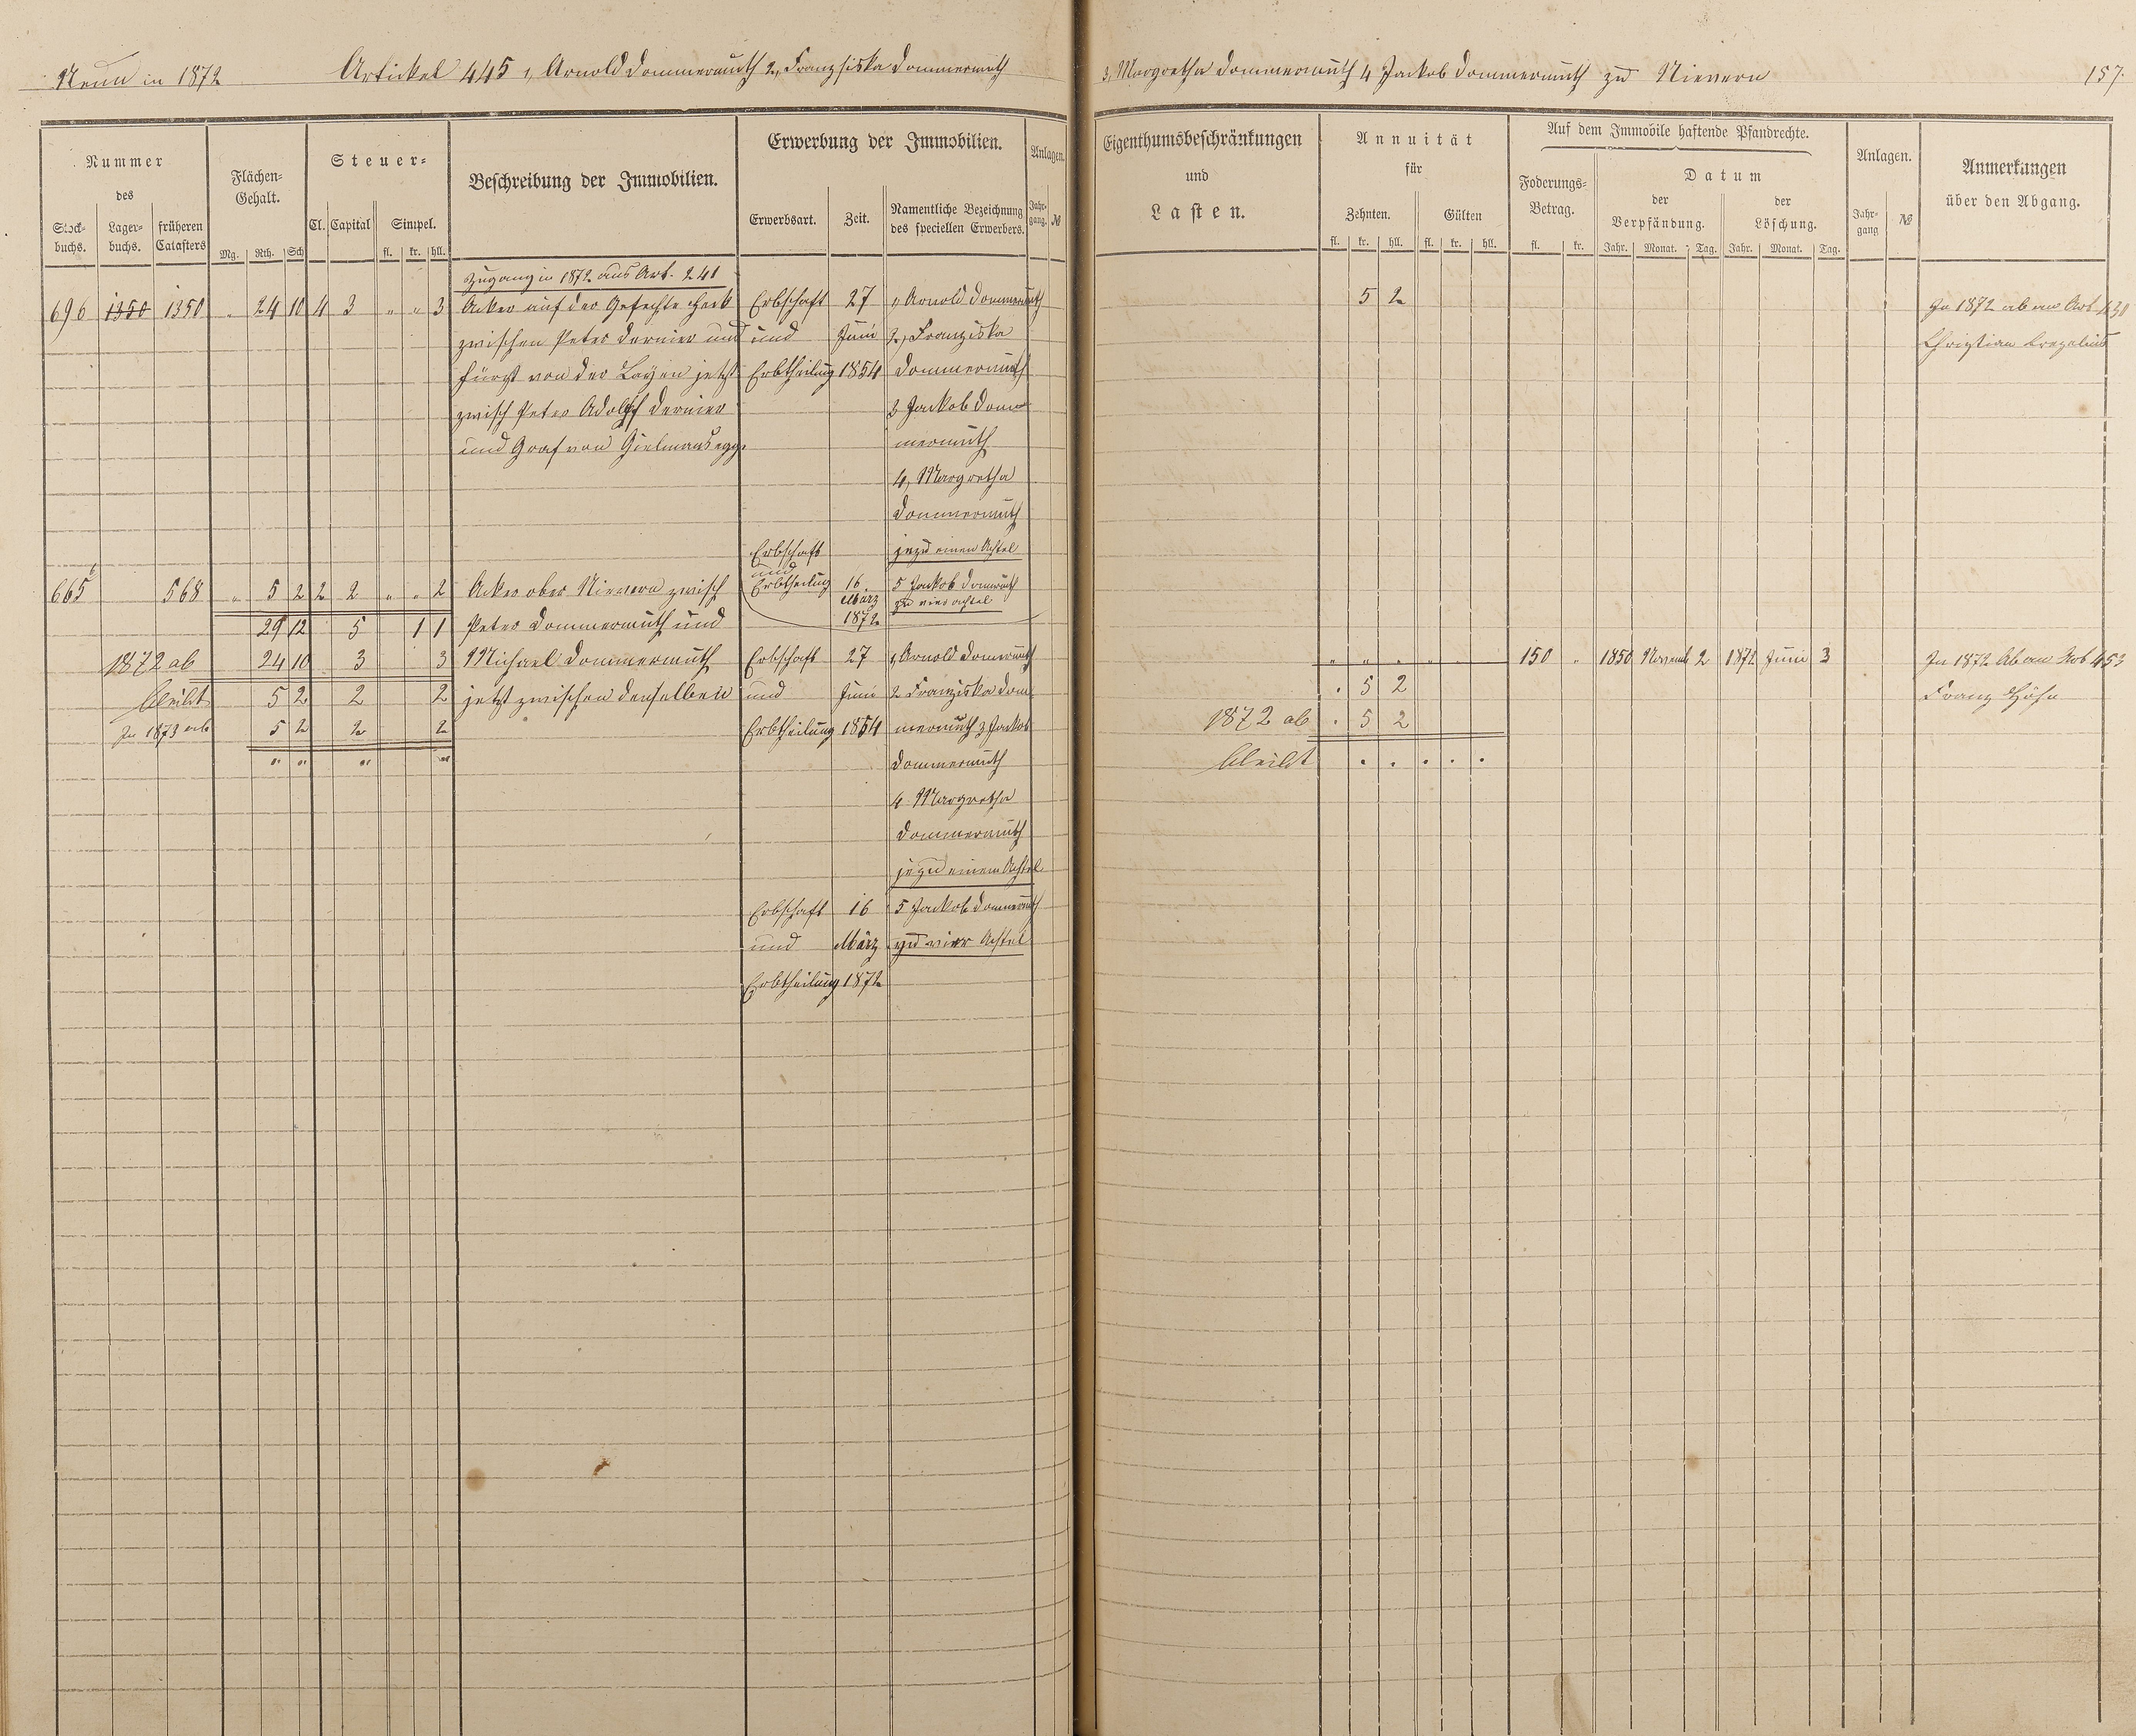 Neun in 1872 Artickel 445 1, Arnold Dommermuth 2, Franzsiska Dommermuth
Nummer
des
Stock-
buchs.
Lager-
buchs.
früheren
Catasters
Flächen-
Gehalt.
Mg. Rth. Sch
Steuer-
Cl. Capital Simpel.
fl. kr. hll.
Beschreibung der Immobilien.
Erwerbung der Immobilien.
Erwerbsart. Zeit. Namentliche Bezeichnung
des speciellen Erwerbers.
Anlagen.
Jahr-
gang. №
Zugang in 1872 aus Art. 241
696 1350 1350 " 24 10 4 3 " " 3 Acker auf der Gefechte Heck Erbschaft 27 1, Arnold Dommermuth
zwischen Peter Dernier und und Juni 2, Franziska
Fürst von der Layen jetzt Erbtheilung 1854 Dommermuth
zwisch Peter Adolf Dernier 3 Jackob Dom
und Graf von Gielmansegge mermuth
4, Margretha
Dommermuth
Erbschaft je zu einen Achtel
und
665 568 " 5 2 2 2 " " 2 Acker ober Nievern zwisch Erbtheilung 16 5 Jackob Dommermuth
März zu vier achtel
29 12 5 1 1 Peter Dommermuth und 1872
1872 ab 24 10 3 3 Michael Dommermuth Erbschaft 27 1, Arnold Dommermuth
bleibt 5 2 2 2 jetzt zwischen denselben und Juni 2 Franziska Dom
In 1873 ab 5 2 2 2 Erbtheilung 1854 mermuth 3 Jackob
" " " " Dommermuth
4 Margretha
Dommermuth
je zu einem Achtel
Erbschaft 16 5 Jackob Dommermuth
und März zu vier Achtel
Erbtheilung 1872
3, Margretha Dommermuth 4 Jackob Dommermuth zu Nievern 157.
Eigenthumsbeschränkungen
und
Lasten.
Annuität
für
Zehnten. Gülten
fl. kr. hll. fl. kr. hll.
Auf dem Immobile haftende Pfandrechte.
Foderungs-
Betrag.
fl. kr.
Datum
der
Verpfändung.
der
Löschung.
Jahr. Monat. Tag. Jahr. Monat. Tag.
Anlagen.
Jahr-
gang №
Anmerkungen
über den Abgang.
5 2 In 1872 ab an Art 430
Christian
" " " " " 150 " 1850 Novemb 2 1872 Juni 3 In 1872 Ab an Art 453
. 5 2 Franz Höhn
1872 ab . 5 2
bleibt . . . . .